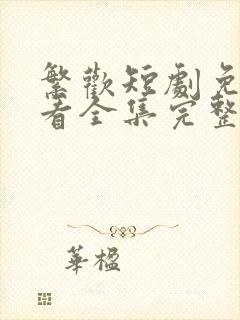 繁歡短劇免
看全集完整
華楹